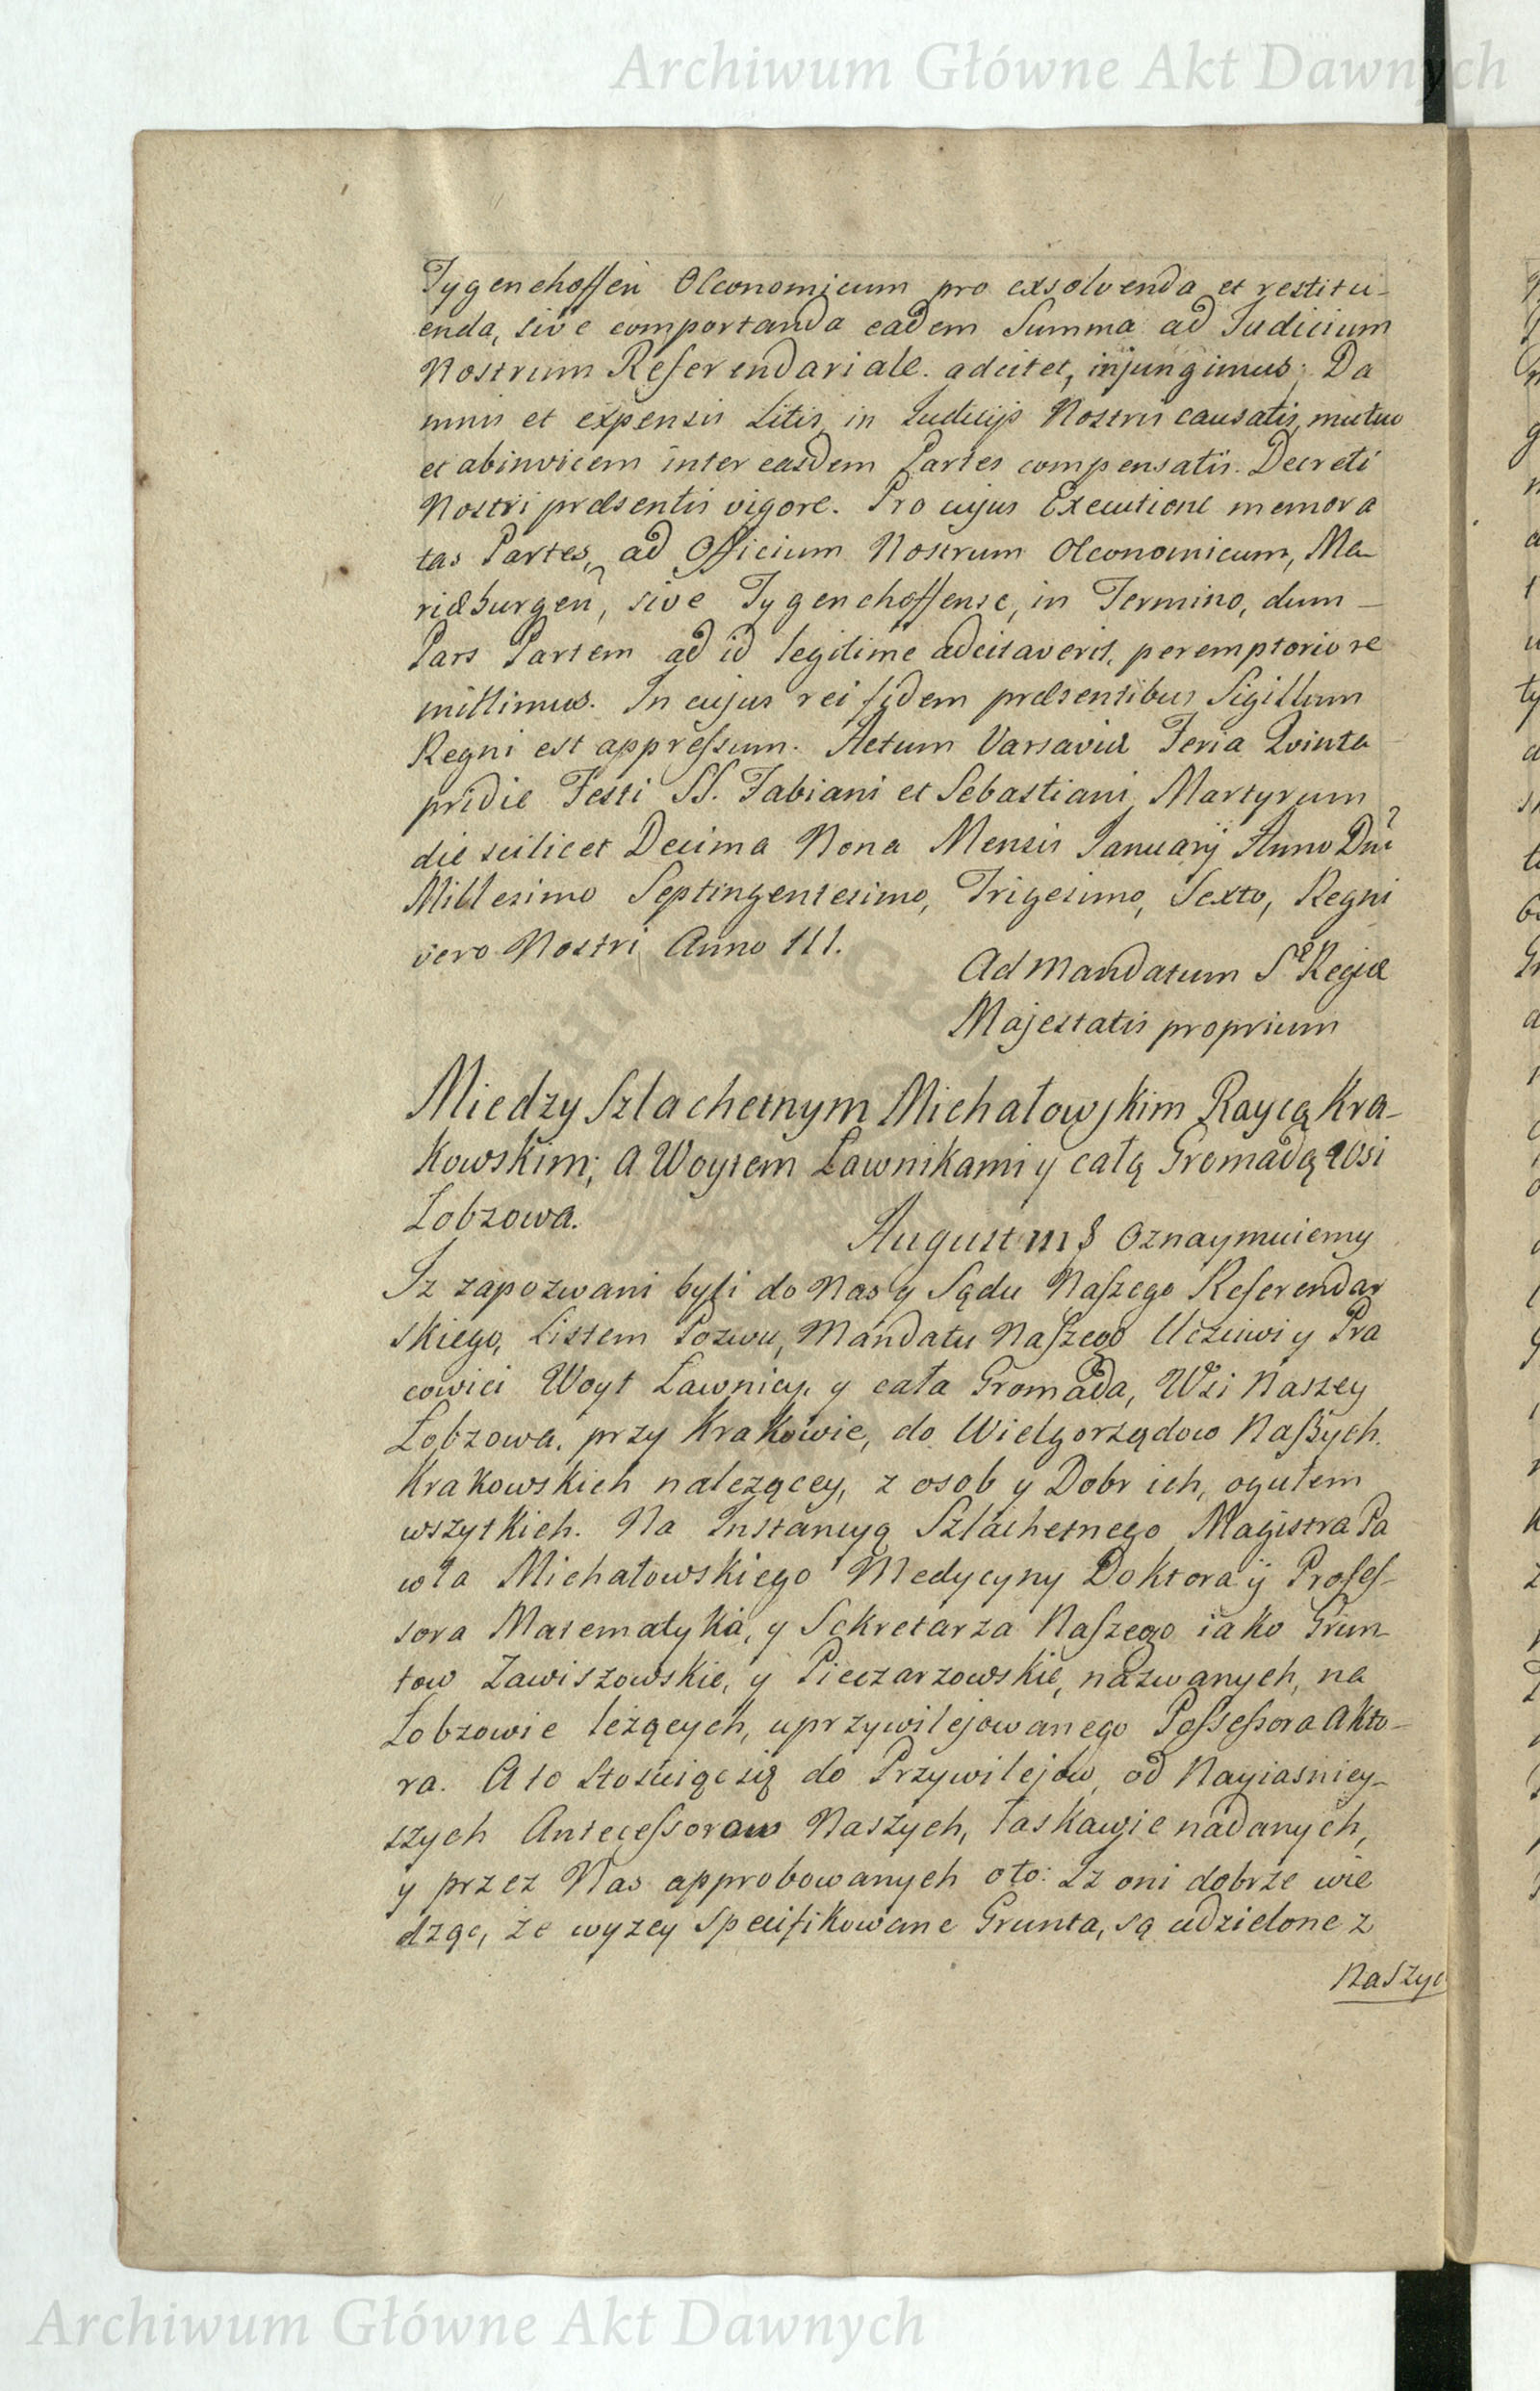 Archiwum Główne Akt Dawnych
Tygenehoffen Oeconomicum pro exsolvenda et restitu-
enda, sive comportanda eadem Summa ad Judicium
Nostrum Referendariale. adcitet, injungimus; Da
mnis et expensis Litis in Judicijs Nostris causatis, mutuo
et abinvicem inter easdem Partes compensatis. Decreti
Nostri præsentis vigore. Pro cujus Executione memora
tas Partes, ad Officium Nostrum Oeconomicum, Ma-
riæburgen, sive Tygenehoffense, in Termino, dum
Pars Partem ad id legitime adcitaverit, peremptorio re
mittimus. In cujus rei fidem præsentibus Sigillum
Regni est appressum. Actum Varsaviæ Feria Qvinta
pridie Festi SS. Fabiani et Sebastiani Martyrum
die scilicet Decima Nona Mensis January Anno Dni
Millesimo Septingentesimo, Trigesimo, Sexto, Regni
vero Nostri Anno III.
Ad Mandatum S. Regiæ
Majestatis proprium
Miedzy Szlachetnym Michałowskim Raycą Kra-
kowskim; a Woytem Ławnikami y całą Gromadą Wsi
Łobzowa.
August III Oznaymuiemy
Iz zapozwani byli do Nas y Sądu Naszego Referendar
skiego, Listem Pozwu, Mandatu Naszego Uczciwi y Pra
cowici Woyt Ławnicy, y cała Gromada, Wsi Naszey
Łobzowa, przy Krakowie, do Wielgorządow Naszych.
Krakowskich nalezącey, z osob y Dobr ich, ogułem
wszytkich. Na Instancyą Szlachetnego Magistra Pa
wła Michałowskiego Medycyny Doktora y Profes-
sora Matematyka, y Sekretarza Naszego iako Grun-
tow Zawiszowskie, y Pieczarzowskie, nazwanych, na
Łobzowie leżących, uprzywilejowanego Possessora Akto-
ra. A to Stosuiąc się do Przywilejow, od Nayiasniey-
szych Antecessorow Naszych, łaskawie nadanych,
y przez Nas approbowanych oto: Iz oni dobrze wie
dząc, że wyzey specifikowane Grunta, są udzielone z
Naszyc
Archiwum Główne Akt Dawnych